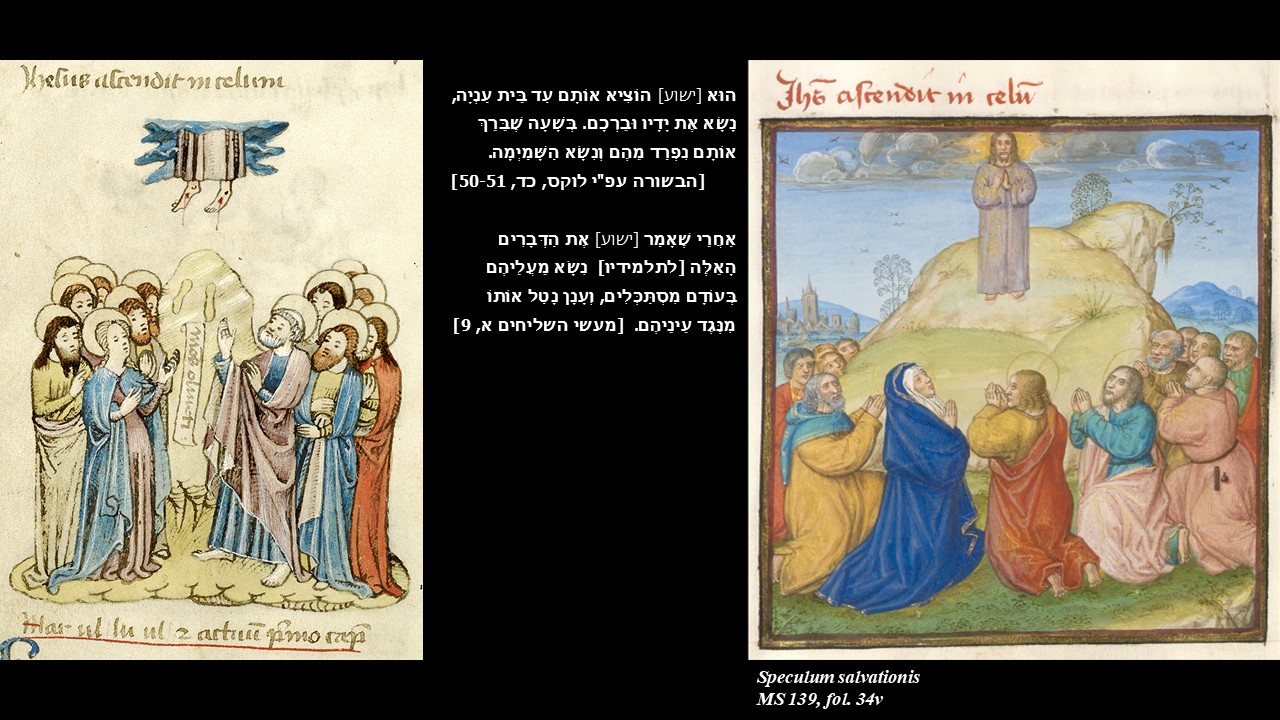 Jhesus ascendit in celum
הוּא [ישוע] הוֹצִיא אוֹתָם עַד בֵּית עַנְיָה,
נָשָׂא אֶת יָדָיו וּבֵרְכָם. בְּשָׁעָה שֶׁבֵּרַךְ
אוֹתָם נִפְרַד מֵהֶם וְנִשָּׂא הַשָּׁמַיְמָה.
[הבשורה עפ"י לוקס, כד, 50-51]
אַחֲרֵי שֶׁאָמַר [ישוע] אֶת הַדְּבָרִים
הָאֵלֶּה [לתלמידיו] נִשָּׂא מֵעֲלֵיהֶם
בְּעוֹדָם מִסְתַּכְּלִים, וְעָנָן נָטַל אוֹתוֹ
מִנֶּגֶד עֵינֵיהֶם. [מעשי השליחים א, 9]
Jhs ascendit in celū
Mar ul lu ul & actuū p̄mo cap̄
Speculum salvationis
MS 139, fol. 34v